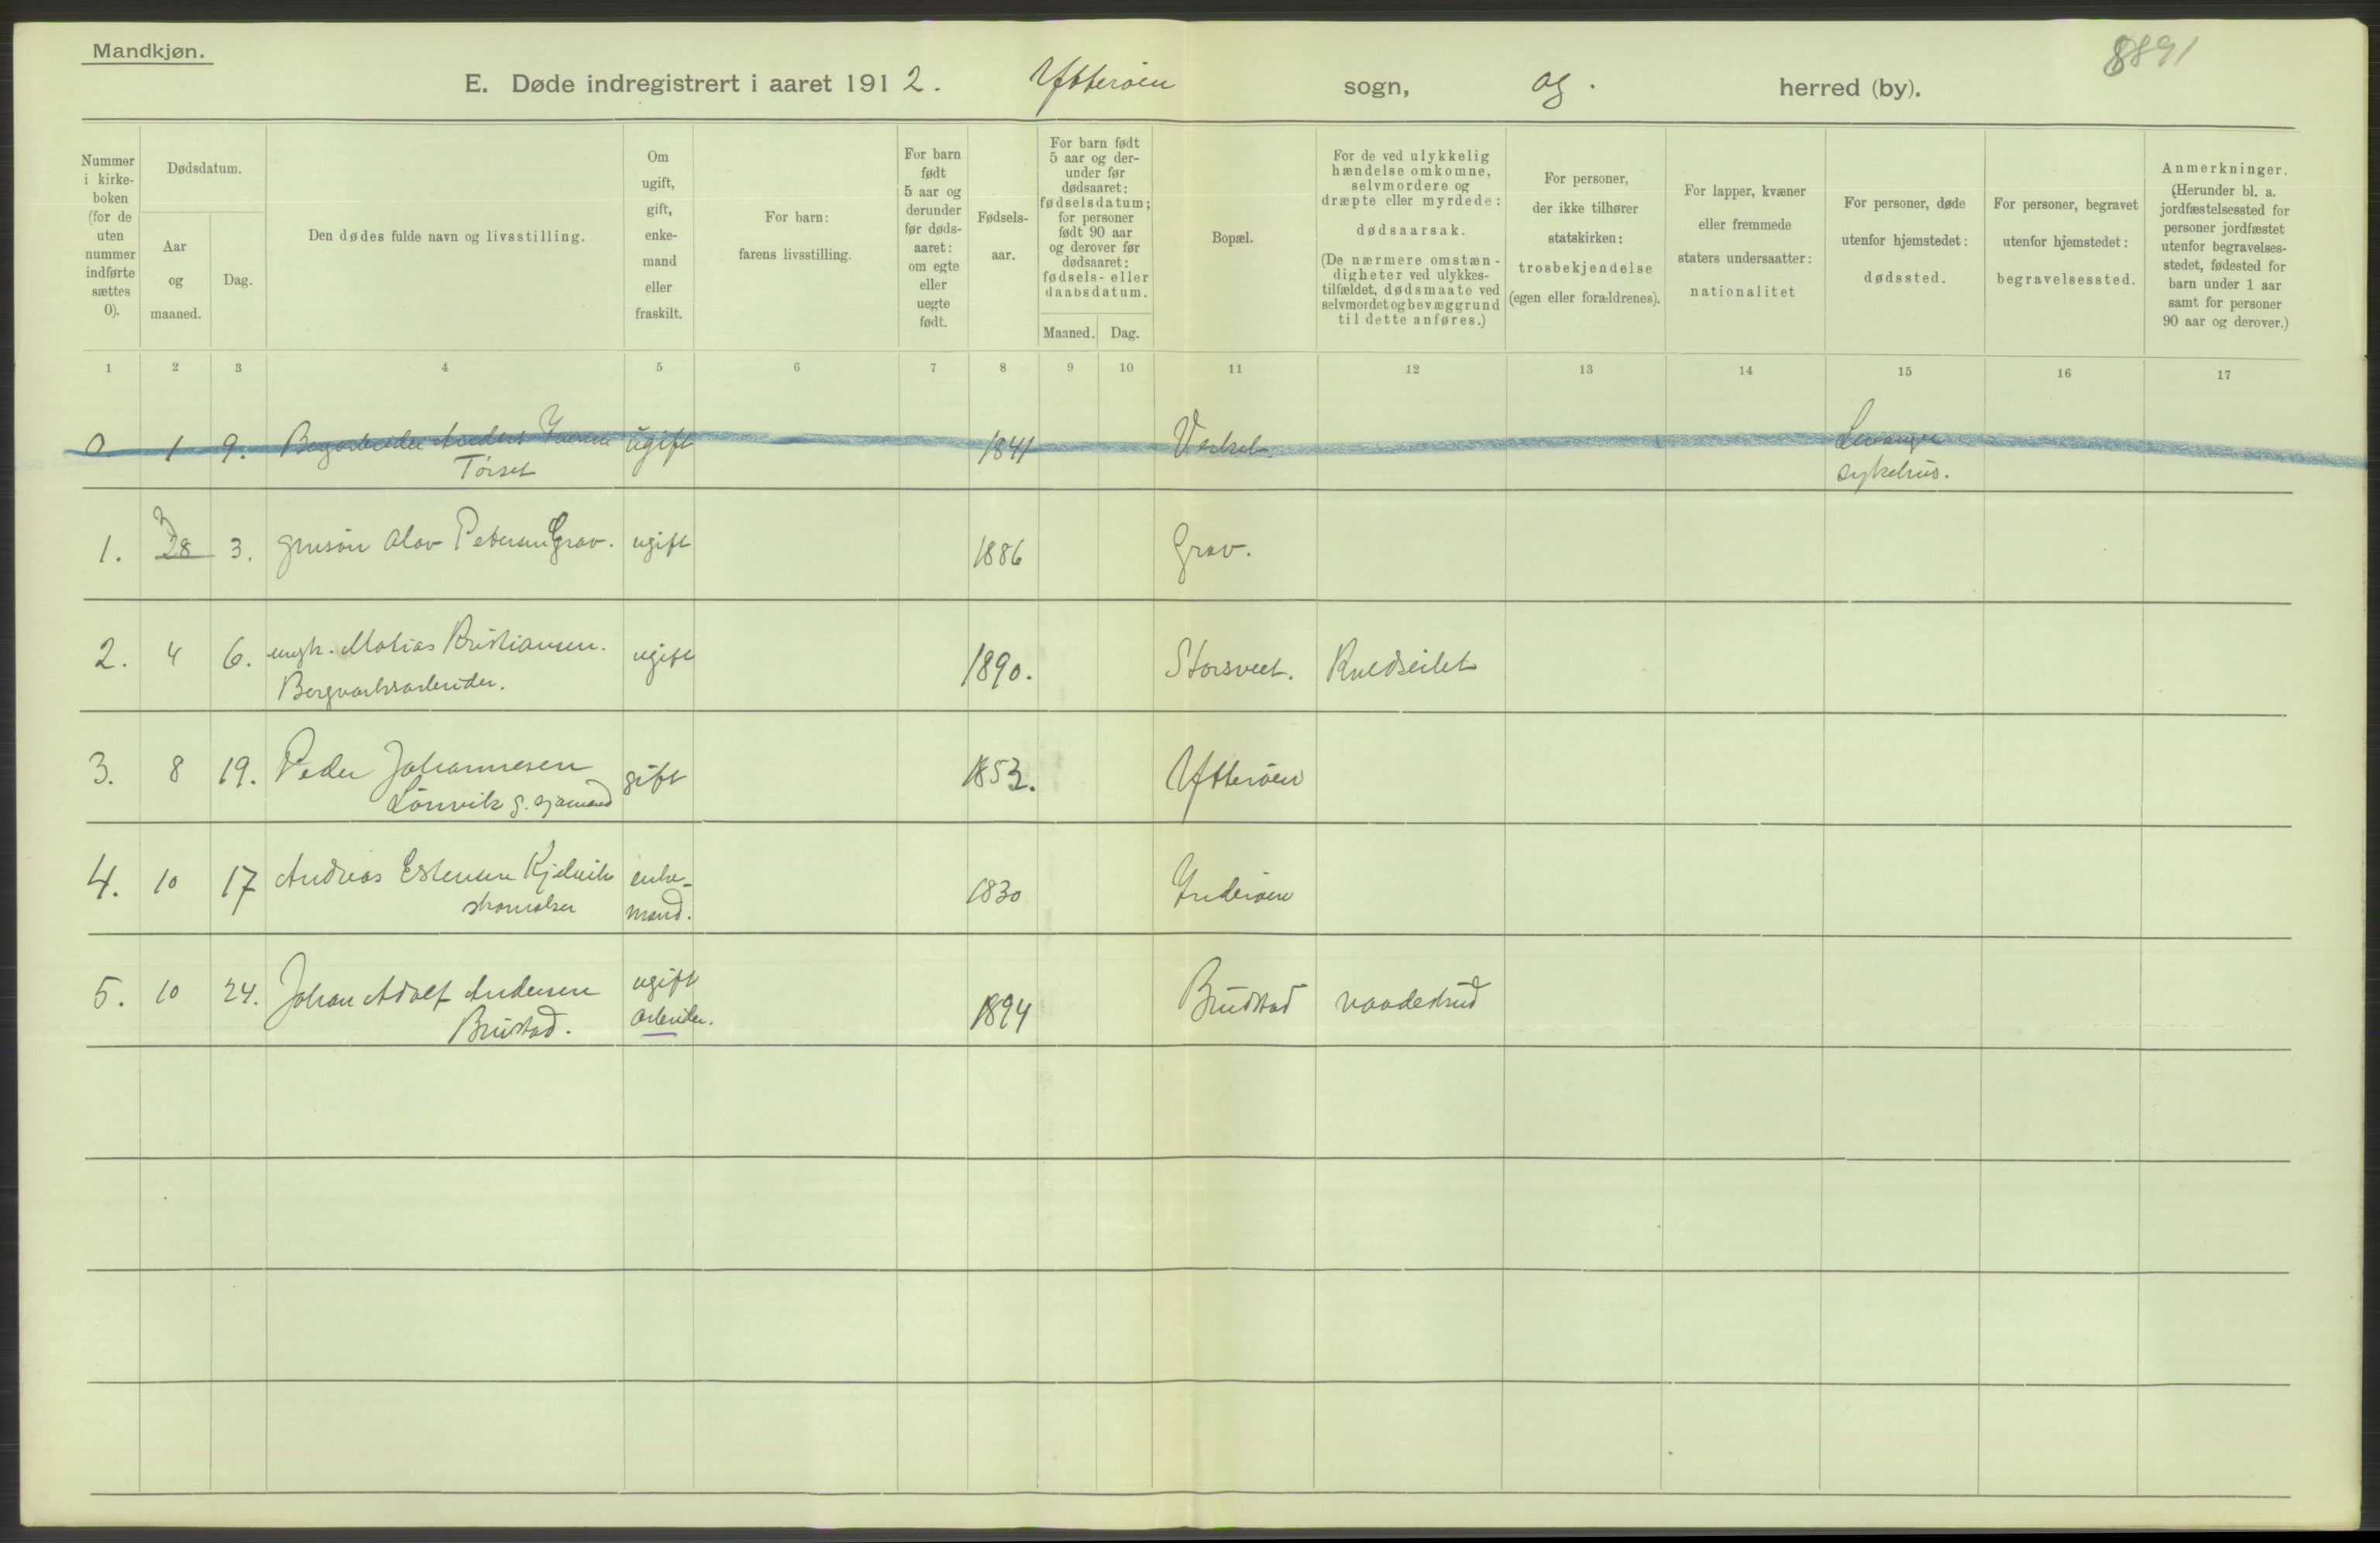 Mandkjøn.
8891
E. Døde indregistrert i aaret 1912. Ytterøen sogn, og. herred (by).
Nummer i kirkeboken (for de uten nummer indførte sættes 0).
Dødsdatum.
Aar og maaned.
Dag.
Den dødes fulde navn og livsstilling.
Om ugift, gift, enkemand eller fraskilt.
For barn: farens livsstilling.
For barn født 5 aar og derunder før dødsaaret: om egte eller uegte født.
Fødselsaar.
For barn født 5 aar og derunder før dødsaaret: fødselsdatum; for personer født 90 aar og derover før dødsaaret: fødsels- eller daabsdatum.
Maaned. Dag.
Bopæl.
For de ved ulykkelig hændelse omkomne, selvmordere og dræpte eller myrdede: dødsaarsak. (De nærmere omstændigheter ved ulykkestilfældet, dødsmaate ved selvmordet og bevæggrund til dette anføres.)
For personer, der ikke tilhører statskirken: trosbekjendelse (egen eller forældrenes).
For lapper, kvæner eller fremmede staters undersaatter: nationalitet
For personer, døde utenfor hjemstedet: dødssted.
For personer, begravet utenfor hjemstedet: begravelsessted.
Anmerkninger. (Herunder bl. a. jordfæstelsessted for personer jordfæstet utenfor begravelsesstedet, fødested for barn under 1 aar samt for personer 90 aar og derover.)
1 2 3 4 5 6 7 8 9 10 11 12 13 14 15 16 17
0 1 9. Anders ugift 1841 Verket. Levanger
Tørset sykehus.
1. 28 3 3. Olav Petersen Grav. ugift 1886 Grav.
2. 4 6. ungk. Matias Kristiansen. ugift 1890. Storsveet. Kuldseilet
Bergverksarbeider.
3. 8 19. Peder Johannesen gift 1853. Ytterøen
Lønvik g. sjømand
4. 10 17 Andreas Estensen Kjelvik enke- 1830 Inderøen
skomaker mand.
5. 10 24. Johan Adolf Andersen ugift 1894 Brudstad vaadeskud
Brustad. arbeider.